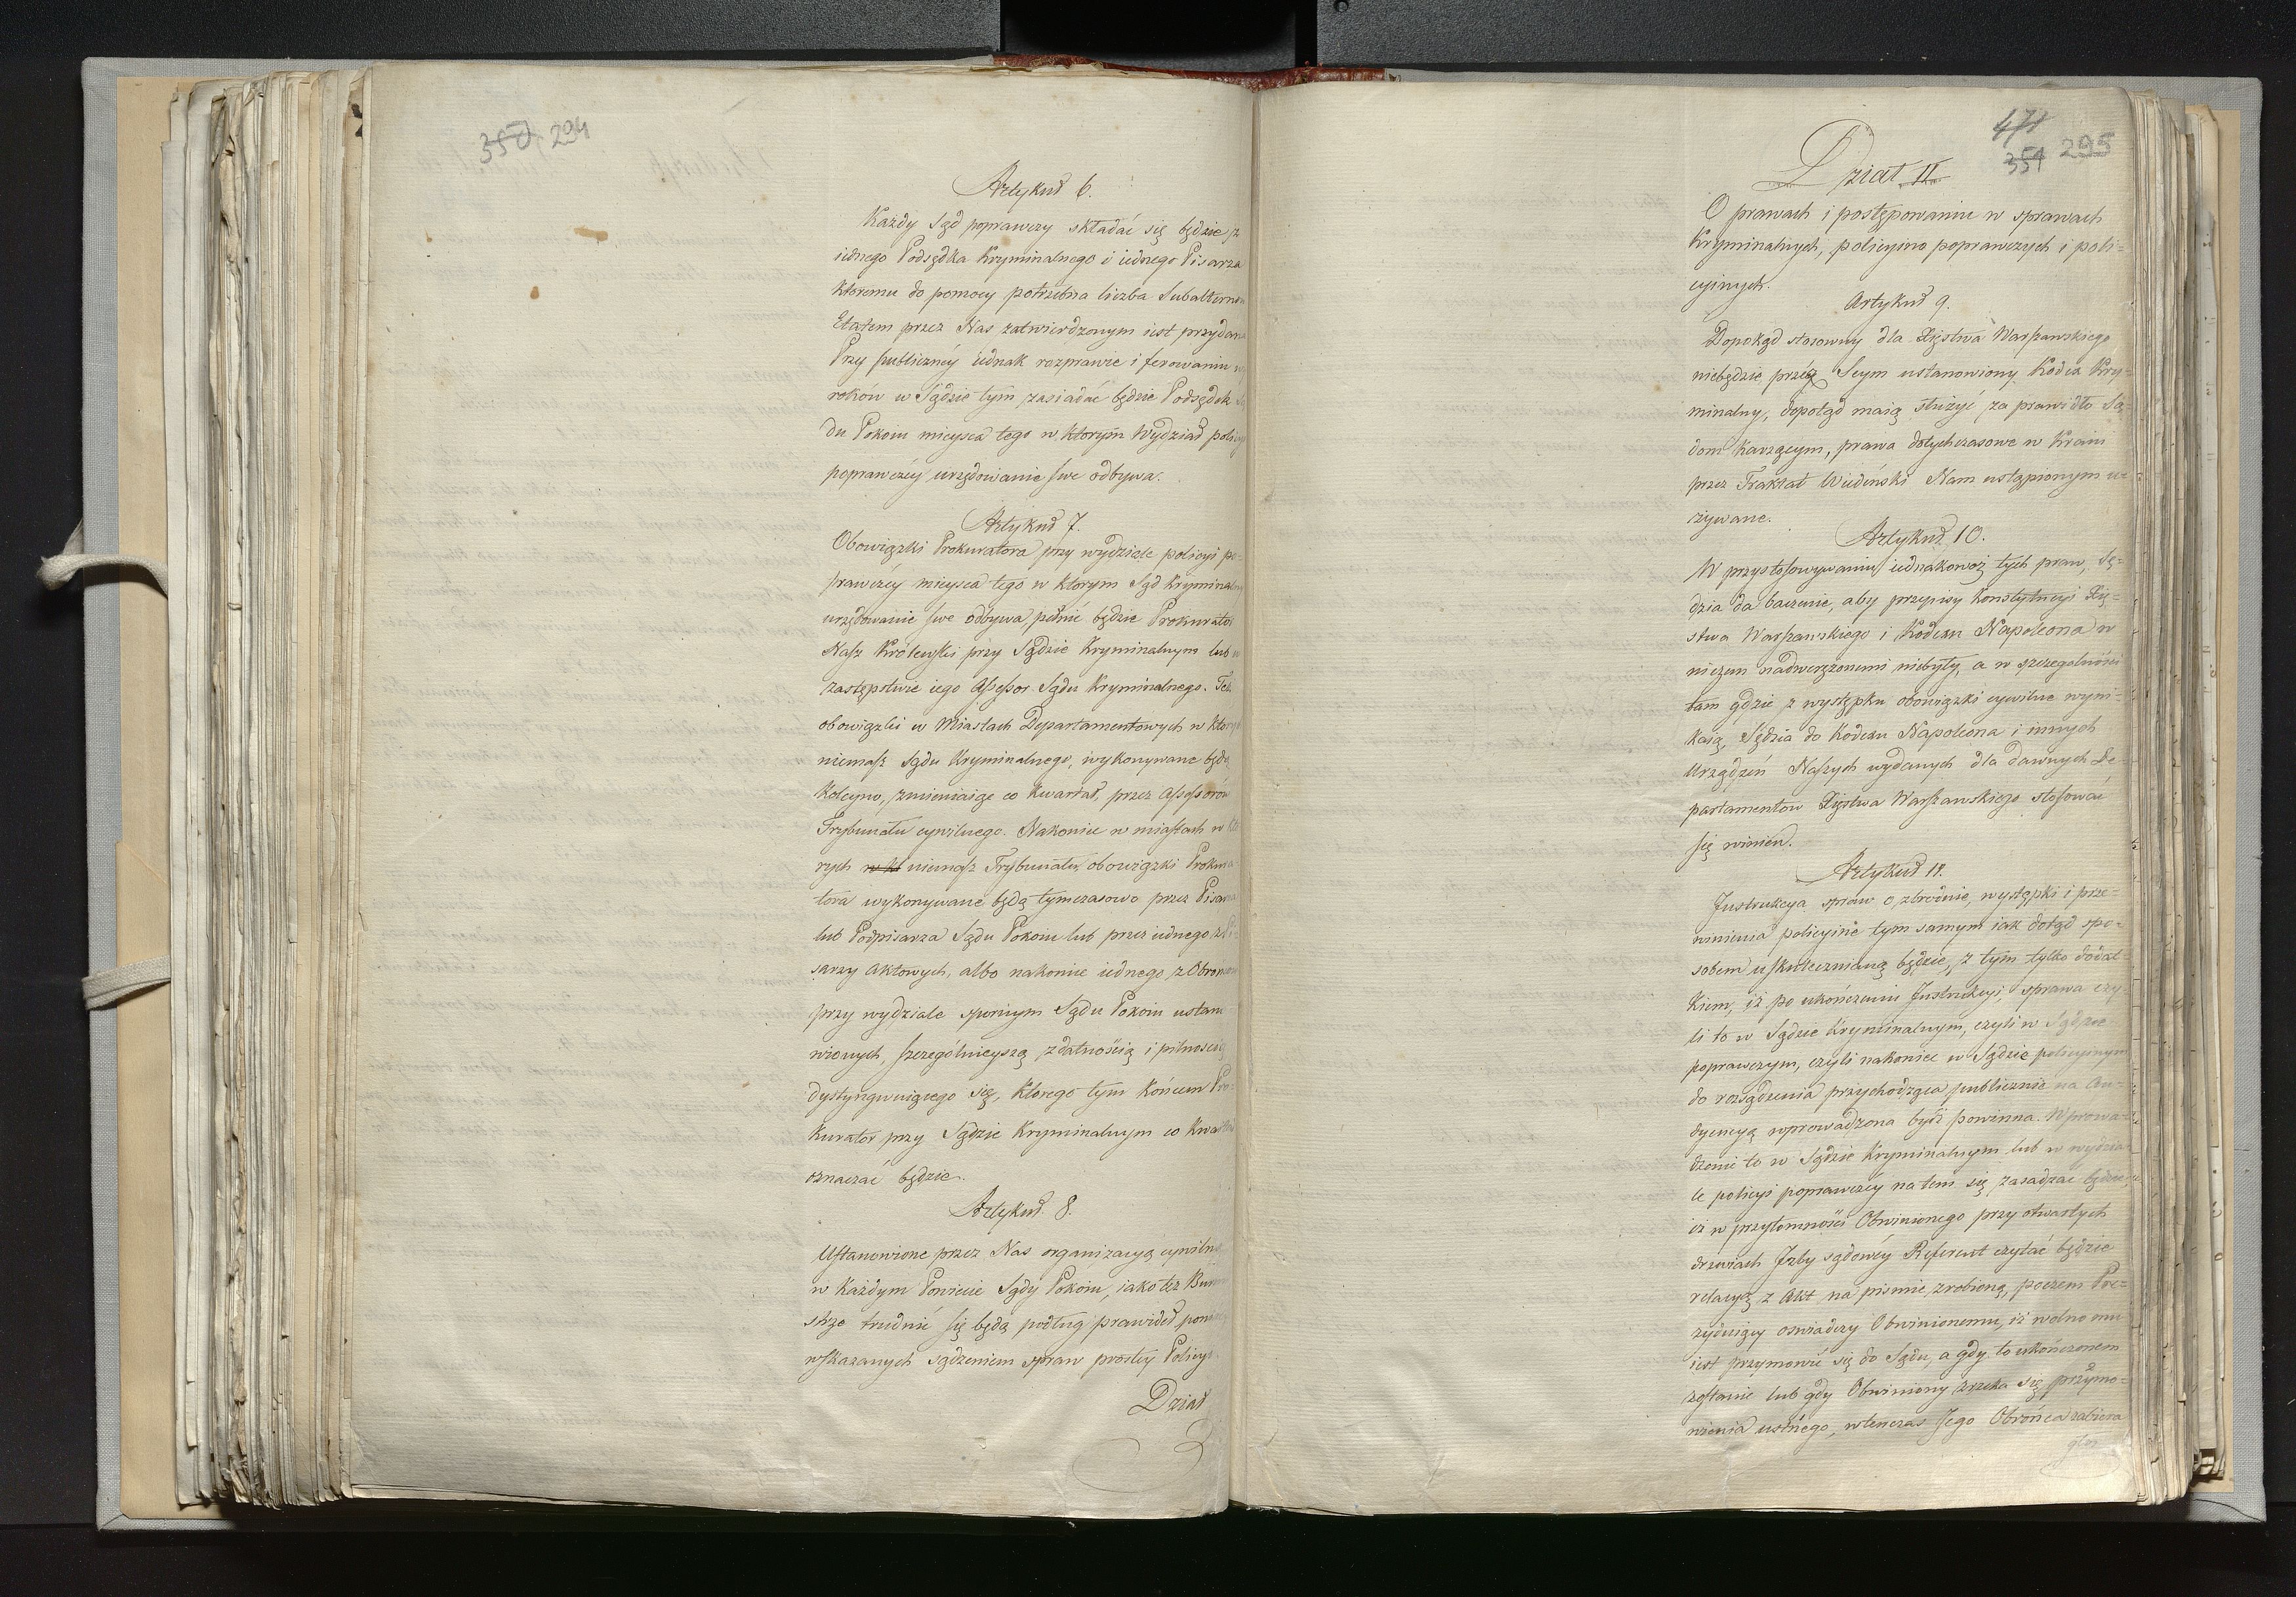 350 294
Artykuł 6.
Każdy Sąd poprawczy składać się będzie z
iednego Podsędka Kryminalnego i iednego Pisarza
ktoremu do pomocy potrzebna liczba Subalternow
Etatem przez Nas zatwierdzonym iest przydana
Przy publiczney iednak rozprawie i ferowaniu wy
roków w Sądzie tym zasiadać będzie Podsędek Są
du Pokoiu mieysca tego w ktorym Wydział policyi
poprawczey urzędowanie swe odbywa.
Artykuł 7.
Obowiązki Prokuratora przy wydziale policyi po-
prawczey mieysca tego w ktorym Sąd Kryminalny
urzędowanie swe odbywa, pełnić będzie Prokurator
Nasz Królewski przy Sądzie Kryminalnym lub w
zastępstwie iego Assessor Sądu Kryminalnego. Też
obowiązki w Miastach Departamentowych w ktorych
niemasz Sądu Kryminalnego, wykonywane będą
Koleyno, zmieniaiąc co kwartał, przez Assessorów
Trybunału cywilnego. Nakoniec w miastach w kto
rych w kt niemasz Trybunału, obowiązki Prokura
tora wykonywane będą tymczasowo przez Pisarza
lub Podpisarza Sądu Pokoiu lub przez iednego z Pi
sarzy Aktowych, albo nakoniec iednego z Obrońców
przy wydziale spornym Sądu Pokoiu ustano
wionych, szczególnieyszą zdatnością i pilnością
dystyngwuiącego się, ktorego tym końcem Pro-
kurator przy Sądzie Kryminalnym co Kwartał
oznaczać będzie.
Artykuł 8.
Ustanowione przez Nas organizacyą cywilną
w Każdym Powiecie Sądy Pokoiu, iako też Burmi
strze trudnić się będą podług prawideł poniżey
wskazanych sądzeniem spraw prostey Policyi
Dział
471
351 295
Dział II
O prawach i postępowaniu w sprawach
Kryminalnych, policyino poprawczych i poli-
cyinych.
Artykuł 9.
Dopokąd stosowny dla Xięstwa Warszawskiego
niebędzie przez Seym ustanowiony Kodex Kry-
minalny, dopotąd maią służyć za prawidło Są-
dom karzącym, prawa dotychczasowe w Kraiu
przez Traktat Wiedeński Nam ustąpionym u-
żywane.
Artykuł 10.
W przystosowywaniu iednakowoż tych praw, Sę-
dzia da baczenie, aby przepisy Konstytucyi Xię-
stwa Warszawskiego i Kodexu Napoleona w
niczem nadwerężonemi niebyły, a w szczególności
tam gdzie z występku obowiązki cywilne wyni-
kaią, Sędzia do Kodexu Napoleona i innych
Urządzeń Naszych wydanych dla dawnych De-
partamentow Xięstwa Warszawskiego stosować
się winien.
Artykuł 11.
Instrukcya spraw o zbrodnie, występki i prze-
winienia policyine tym samym iak dotąd spo-
sobem uskutecznianą będzie, z tym tylko dodat-
kiem, iż po ukończeniu Instrukcyi, sprawa czy-
li to w Sądzie Kryminalnym, czyli w Sądzie
poprawczym, czyli nakoniec w Sądzie policyinym
do rozsądzenia przychodząca publicznie na Au-
dyencyą wprowadzona być powinna. Wprowa-
dzenie to w Sądzie Kryminalnym lub w wydzia-
le policyi poprawczey na tem się zasadzać będzie,
iż w przytomności Obwinionego przy otwartych
drzwiach Izby sądowey Referent czytać będzie
relacyą z Akt na piśmie zrobioną, poczem Pre-
zyduiący oświadczy Obwinionemu, iż wolno mu
iest przymówić się do Sądu, a gdy to ukończonem
zostanie lub gdy Obwiniony zrzeka się przymó-
wienia ustnego, wtenczas Jego Obrońca zabiera
głos